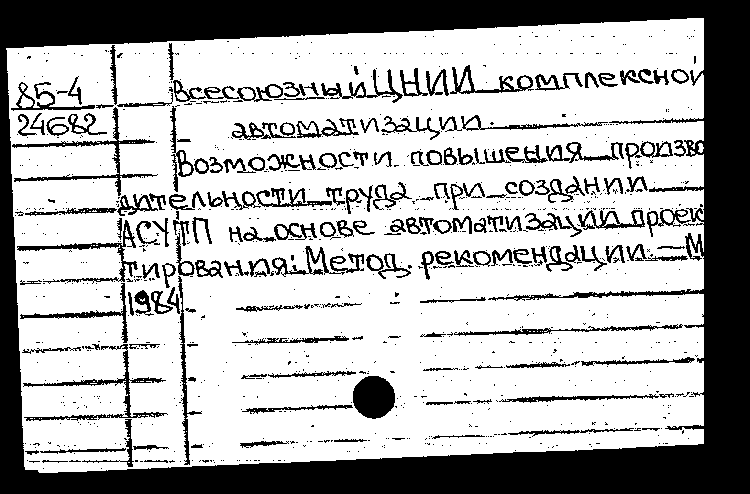 85-4 Всесоюзный ЦНИИ комплексной
24682 автоматизации.
Возможности повышения произво
дительности труда при создании
АСУТП на основе автоматизации проек
тирования: Метод. рекомендации. — М
1984